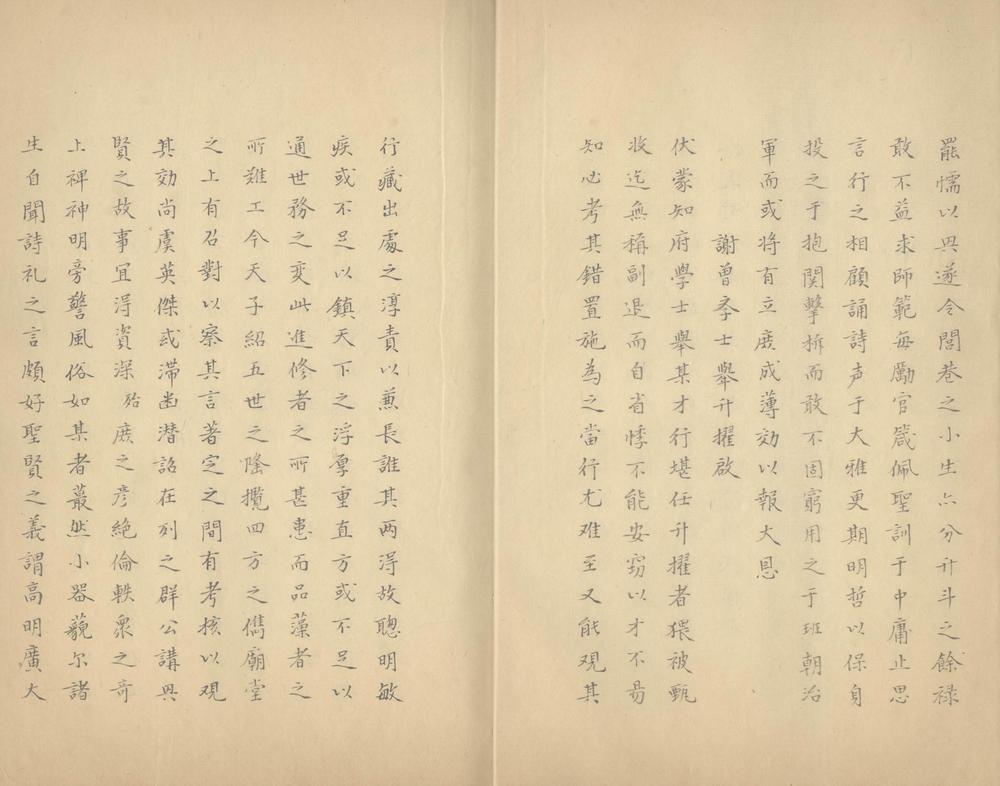 罷懦以興遂令閭巷之小生亦分升斗之餘禄
敢不益求師範每勵官箴佩聖訓于中庸止思
言行之相顧誦詩声于大雅更期明哲以保身
投之于抱関擊柝而敢不固窮用之于班朝治
軍而或將有立庶成薄効以報大恩
謝曾孝士舉升擢啟
伏蒙知府學士舉某才行堪任升擢者猥被甄
收迄無稱副退而自省悸不能安竊以才不易
知必考其錯置施為之當行尤难至又能观其
行藏出處之淳責以兼長誰其两得故聰明敏
疾或不足以鎮天下之浮厚重直方或不足以
通世務之变此進修者之所甚患而品藻者之
所难工今天子紹五世之隆攬四方之儁廟堂
之上有召對以察其言著定之間有考核以观
其効尚虞英傑或滞幽潜詔在列之群公講興
賢之故事宜得資深殆庶之彦絶倫軼衆之奇
上裨神明旁警風俗如某者蕞然小器藐尔諸
生自聞詩礼之言頗好聖賢之義謂高明廣大